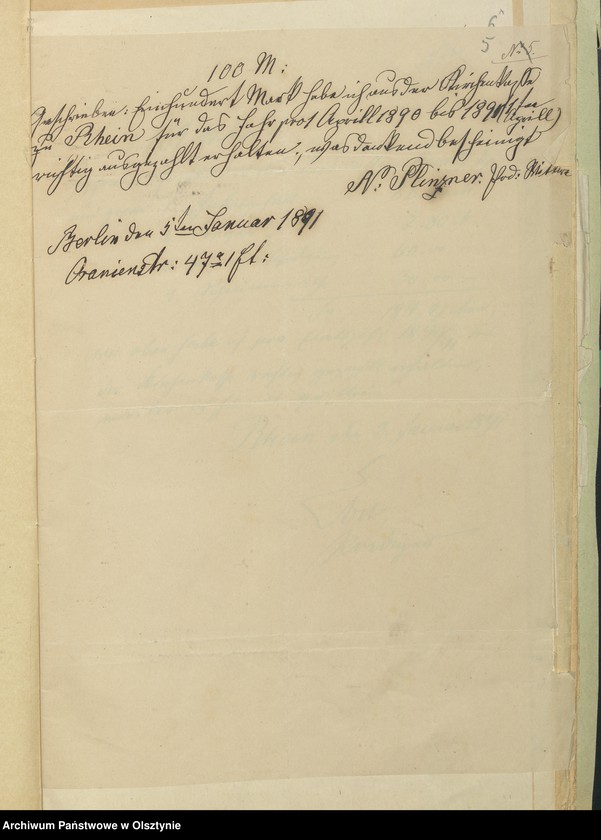 6
5
No 5.
100 M:
Geschrieben: Einhundert Mark habe ich aus der Kirchenkasse
zu Rhein für das Jahr, vom 1 Aprill 1890 bis 1891 (1ten Aprill)
richtig ausgezahlt erhalten, was dankend bescheinigt
A: Plinzner. Pred: Witwe
Berlin den 5ten Januar 1891
Oranienstr: 47a 1 ft:
Archiwum Państwowe w Olsztynie